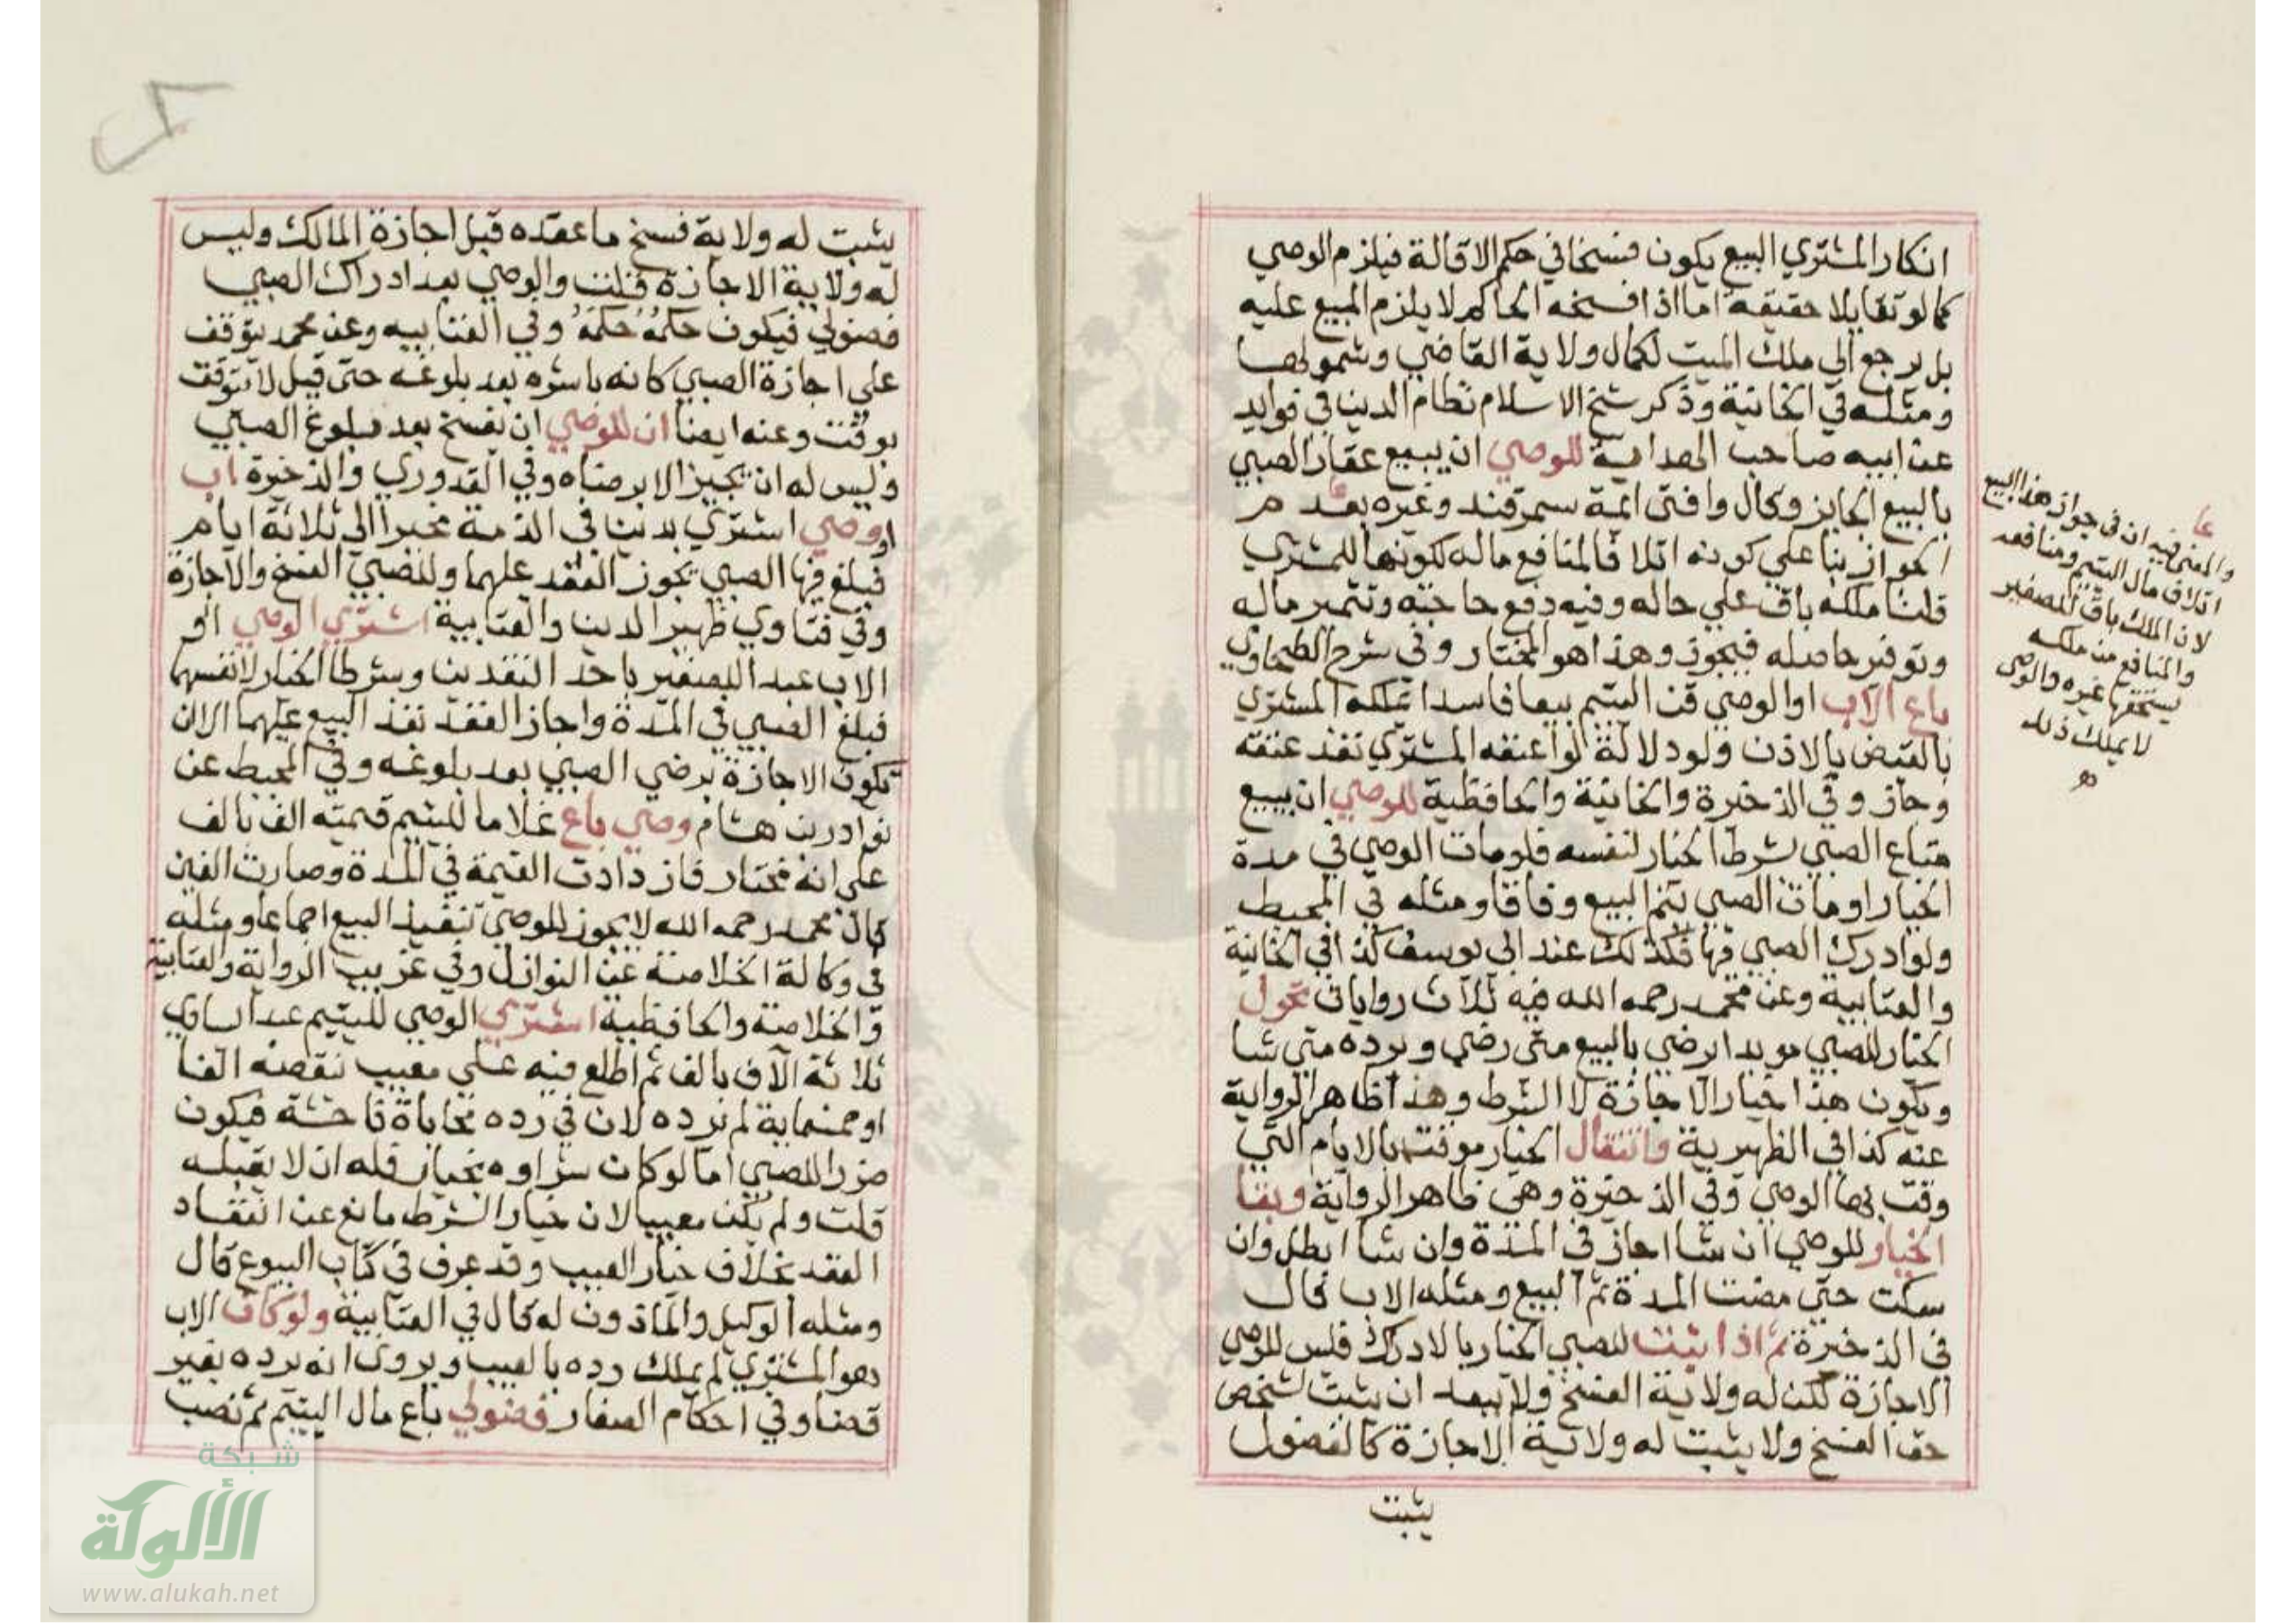 انكار المشتري البيع يكون فسخا في حكم الاقالة فيلزم الوصي
كما لو تقايلا حقيقة اما اذا فسخه الحاكم لا يلزم المبيع عليه
بل يرجع الي ملك الميت لكمال ولاية القاضي وشمولها
ومثله في الخانية وذكر شيخ الاسلام نظام الدين في فوايد
عن ابيه صاحب الهداية للوصي ان يبيع عقار الصبي
بالبيع الجايز وكال وافتى ايمة سمرقند وغيره بعدم
الجواز بنا علي كونه اتلافا لمنافع ماله لكونها للمشتري
قلنا ملكه باق علي حاله وفيه دفع حاجته وتثمير ماله
وتوفير حاصله فيجوز وهذا هو المختار وفي شرح الطحاوي
باع الاب او الوصي قن اليتيم بيعا فاسدا تملكه المشتري
بالقبض بالاذن ولو دلالة لو اعتقه المشتري نفذ عتقه
وجاز وفي الذخيرة والخانية والحافظية للوصي ان يبيع
متاع الصبي بشرط الخيار لنفسه فلو مات الوصي في مدة
الخيار او مات الصبي يتم البيع وفاقا ومثله في المحيط
ولو ادرك الصبي فيها فكذلك عند ابي يوسف كذا في الخانية
والعتابية وعن محمد رحمه الله فيه ثلاث روايات تحول
الخيار للصبي موبدا يرضي بالبيع متى رضي ويرده متي شا
ويكون هذا خيار الاجازة لا الشرط وهذا ظاهر الرواية
عنه كذا في الظهيرية وانتقال الخيار موقت بالايام التي
وقت بها الوصي وفي الذخيرة وهي ظاهر الرواية وبقا
الخيار للوصي ان شا اجاز في المدة وان شا ابطل وان
سكت حتي مضت المدة تم البيع ومثله الاب قال
في الذخيرة ثم اذا يثبت للصبي الخيار بالادراك فليس للوصي
الاجازة لكن له ولاية الفسخ ولا يبعد ان يثبت لشخص
حق الفسخ ولا يثبت له ولاية الاجازة كالفضول
يثبت
عا
والمفتى فيه ان في جواز هذا البيع
اتلاف مال اليتيم ومنافعه
لان الملك باق للصغير
والمنافع من ملكه
يستحقها غيره والوصي
لا يملك ذلك
يثبت له ولاية فسخ ما عقده قبل اجازة المالك وليس
له ولاية الاجازة قلت والوصي بعد ادراك الصبي
فضولي فيكون حكمُهُ حكمَهُ وفي العتابيه وعن محمد يتوقف
على اجازة الصبي كانه باشره بعد بلوغه حتى قيل لا يتوقت
بوقت وعنه ايضا ان للوصي ان يفسخ بعد بلوغ الصبي
وليس له ان يجيز الا برضاه وفي القدوري والذخيرة اب
او وصي اشتري بدين في الذمة مخيرا الي ثلاثة ايام
فبلغ فيها الصبي يجوز العقد عليهما وللصبي الفسخ والاجازة
وفي فتاوي ظهير الدين والعتابية اشتري الوصي او
الاب عبدا للصغير باحد النقدين وشرطا الخيار لانفسهما
فبلغ الصبي في المدة واجاز العقد نفذ البيع عليهما الا ان
تكون الاجازة برضي الصبي بعد بلوغه وفي المحيط عن
نوادر بن هشام وصي باع غلاما لليتيم قيمته الف بالف
على انه مختار فازدادت القيمة في المدة وصارت الفين
قال محمد رحمه الله لا يجوز للوصي تنفيذ البيع اجماعا ومثله
في وكالة الخلاصة عن النوازل وفي غريب الرواية والعتابية
والخلاصة والحافظية اشتري الوصي لليتيم عبدا يساوي
ثلاثة الاف بالف ثم اطلع فيه علي معيب نقصه الفا
او خمسماية لم يرده لان في رده محاباة فاحشة فيكون
ضررا للصبي اما لو كان شراوه بخيار فله ان لا يقبله
قلت ولم يكن معيبا لان خيار الشرط مانع عن انعقاد
العقد بخلاف خيار العيب وقد عرف في كتاب البيوع قال
ومثله الوكيل والماذون له قال في العتابية ولو كان الاب
هو المشتري لم يملك رده بالعيب ويروى انه يرده بغير
قضا وفي احكام الصغار فضولي باع مال اليتيم ثم نصب
شبكة
الألوكة
www.alukah.net